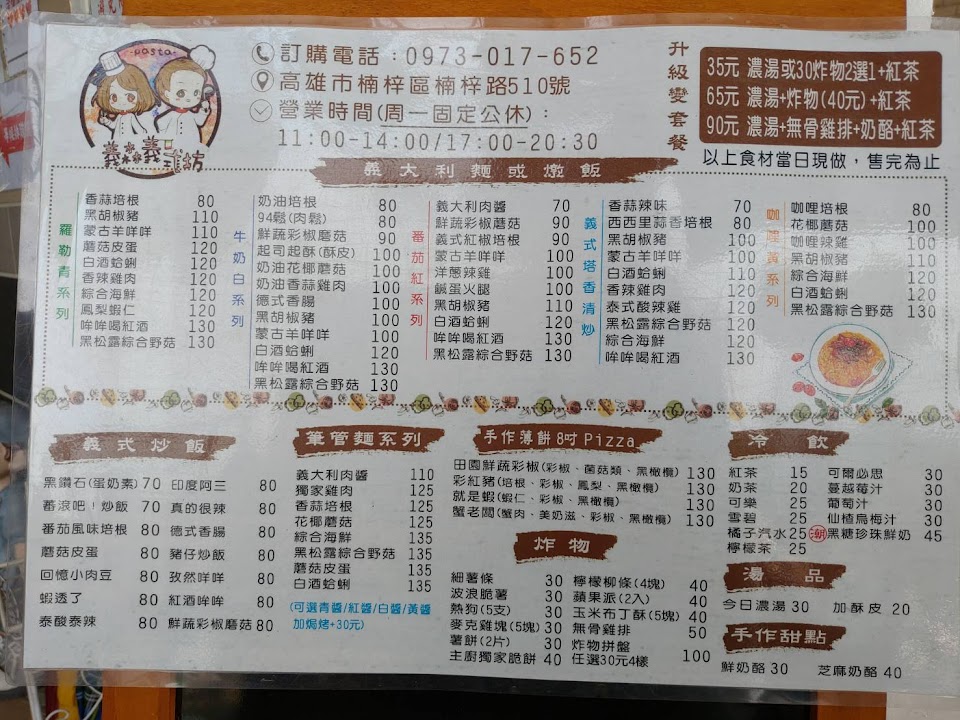 pasta
義義
坊
訂購電話：0973-017-652
高雄市楠梓區楠梓路510號
營業時間(周一固定公休)：
11:00-14:00/17:00-20:30
升級變套餐
35元 濃湯或30炸物2選1+紅茶
65元 濃湯+炸物(40元)+紅茶
90元 濃湯+無骨雞排+奶酪+紅茶
以上食材當日現做，售完為止
義大利麵或燉飯
羅勒青系列
香蒜培根 80
黑胡椒豬 110
蒙古羊咩咩 110
蘑菇皮蛋 120
白酒蛤蜊 120
香辣雞肉 120
綜合海鮮 120
鳳梨蝦仁 120
哞哞喝紅酒 130
黑松露綜合野菇 130
牛奶白系列
奶油培根 80
94鬆(肉鬆) 80
鮮蔬彩椒蘑菇 90
起司起酥(酥皮) 100
奶油花椰蘑菇 100
奶油香蒜雞肉 100
德式香腸 100
黑胡椒豬 100
蒙古羊咩咩 100
白酒蛤蜊 120
哞哞喝紅酒 130
黑松露綜合野菇 130
番茄紅系列
義大利肉醬 70
鮮蔬彩椒蘑菇 90
義式紅椒培根 90
蒙古羊咩咩 100
洋蔥辣雞 100
鹹蛋火腿 100
黑胡椒豬 110
白酒蛤蜊 120
哞哞喝紅酒 130
黑松露綜合野菇 130
義式塔香清炒
香蒜辣味 70
西西里蒜香培根 80
黑胡椒豬 100
蒙古羊咩咩 100
白酒蛤蜊 110
香辣雞肉 120
泰式酸辣雞 120
黑松露綜合野菇 120
綜合海鮮 120
哞哞喝紅酒 130
咖哩黃系列
咖哩培根 80
花椰蘑菇 100
咖哩辣雞 100
黑胡椒豬 110
綜合海鮮 120
白酒蛤蜊 120
黑松露綜合野菇 130
義式炒飯
黑鑽石(蛋奶素) 70 印度阿三 80
蕃浪吧！炒飯 70 真的很辣 80
番茄風味培根 80 德式香腸 80
蘑菇皮蛋 80 豬仔炒飯 80
回憶小肉豆 80 孜然咩咩 80
蝦透了 80 紅酒哞哞 80
泰酸泰辣 80 鮮蔬彩椒蘑菇 80
筆管麵系列
義大利肉醬 110
獨家雞肉 125
香蒜培根 125
花椰蘑菇 125
綜合海鮮 135
黑松露綜合野菇 135
蘑菇皮蛋 135
白酒蛤蜊 135
(可選青醬/紅醬/白醬/黃醬
加焗烤+30元)
手作薄餅8吋Pizza
田園鮮蔬彩椒(彩椒、菌菇類、黑橄欖) 130
彩紅豬(培根、彩椒、鳳梨、黑橄欖) 130
就是蝦(蝦仁、彩椒、黑橄欖) 130
蟹老闆(蟹肉、美奶滋、彩椒、黑橄欖) 130
炸物
細薯條 30 檸檬柳條(4塊) 40
波浪脆薯 30 蘋果派(2入) 40
熱狗(5支) 30 玉米布丁酥(5塊) 40
麥克雞塊(5塊) 30 無骨雞排 50
薯餅(2片) 30 炸物拼盤
主廚獨家脆餅 40 任選30元4樣 100
冷飲
紅茶 15 可爾必思 30
奶茶 20 蔓越莓汁 30
可樂 25 葡萄汁 30
雪碧 25 仙楂烏梅汁 30
橘子汽水 25 潮 黑糖珍珠鮮奶 45
檸檬茶 25
湯品
今日濃湯 30 加酥皮 20
手作甜點
鮮奶酪 30 芝麻奶酪 40